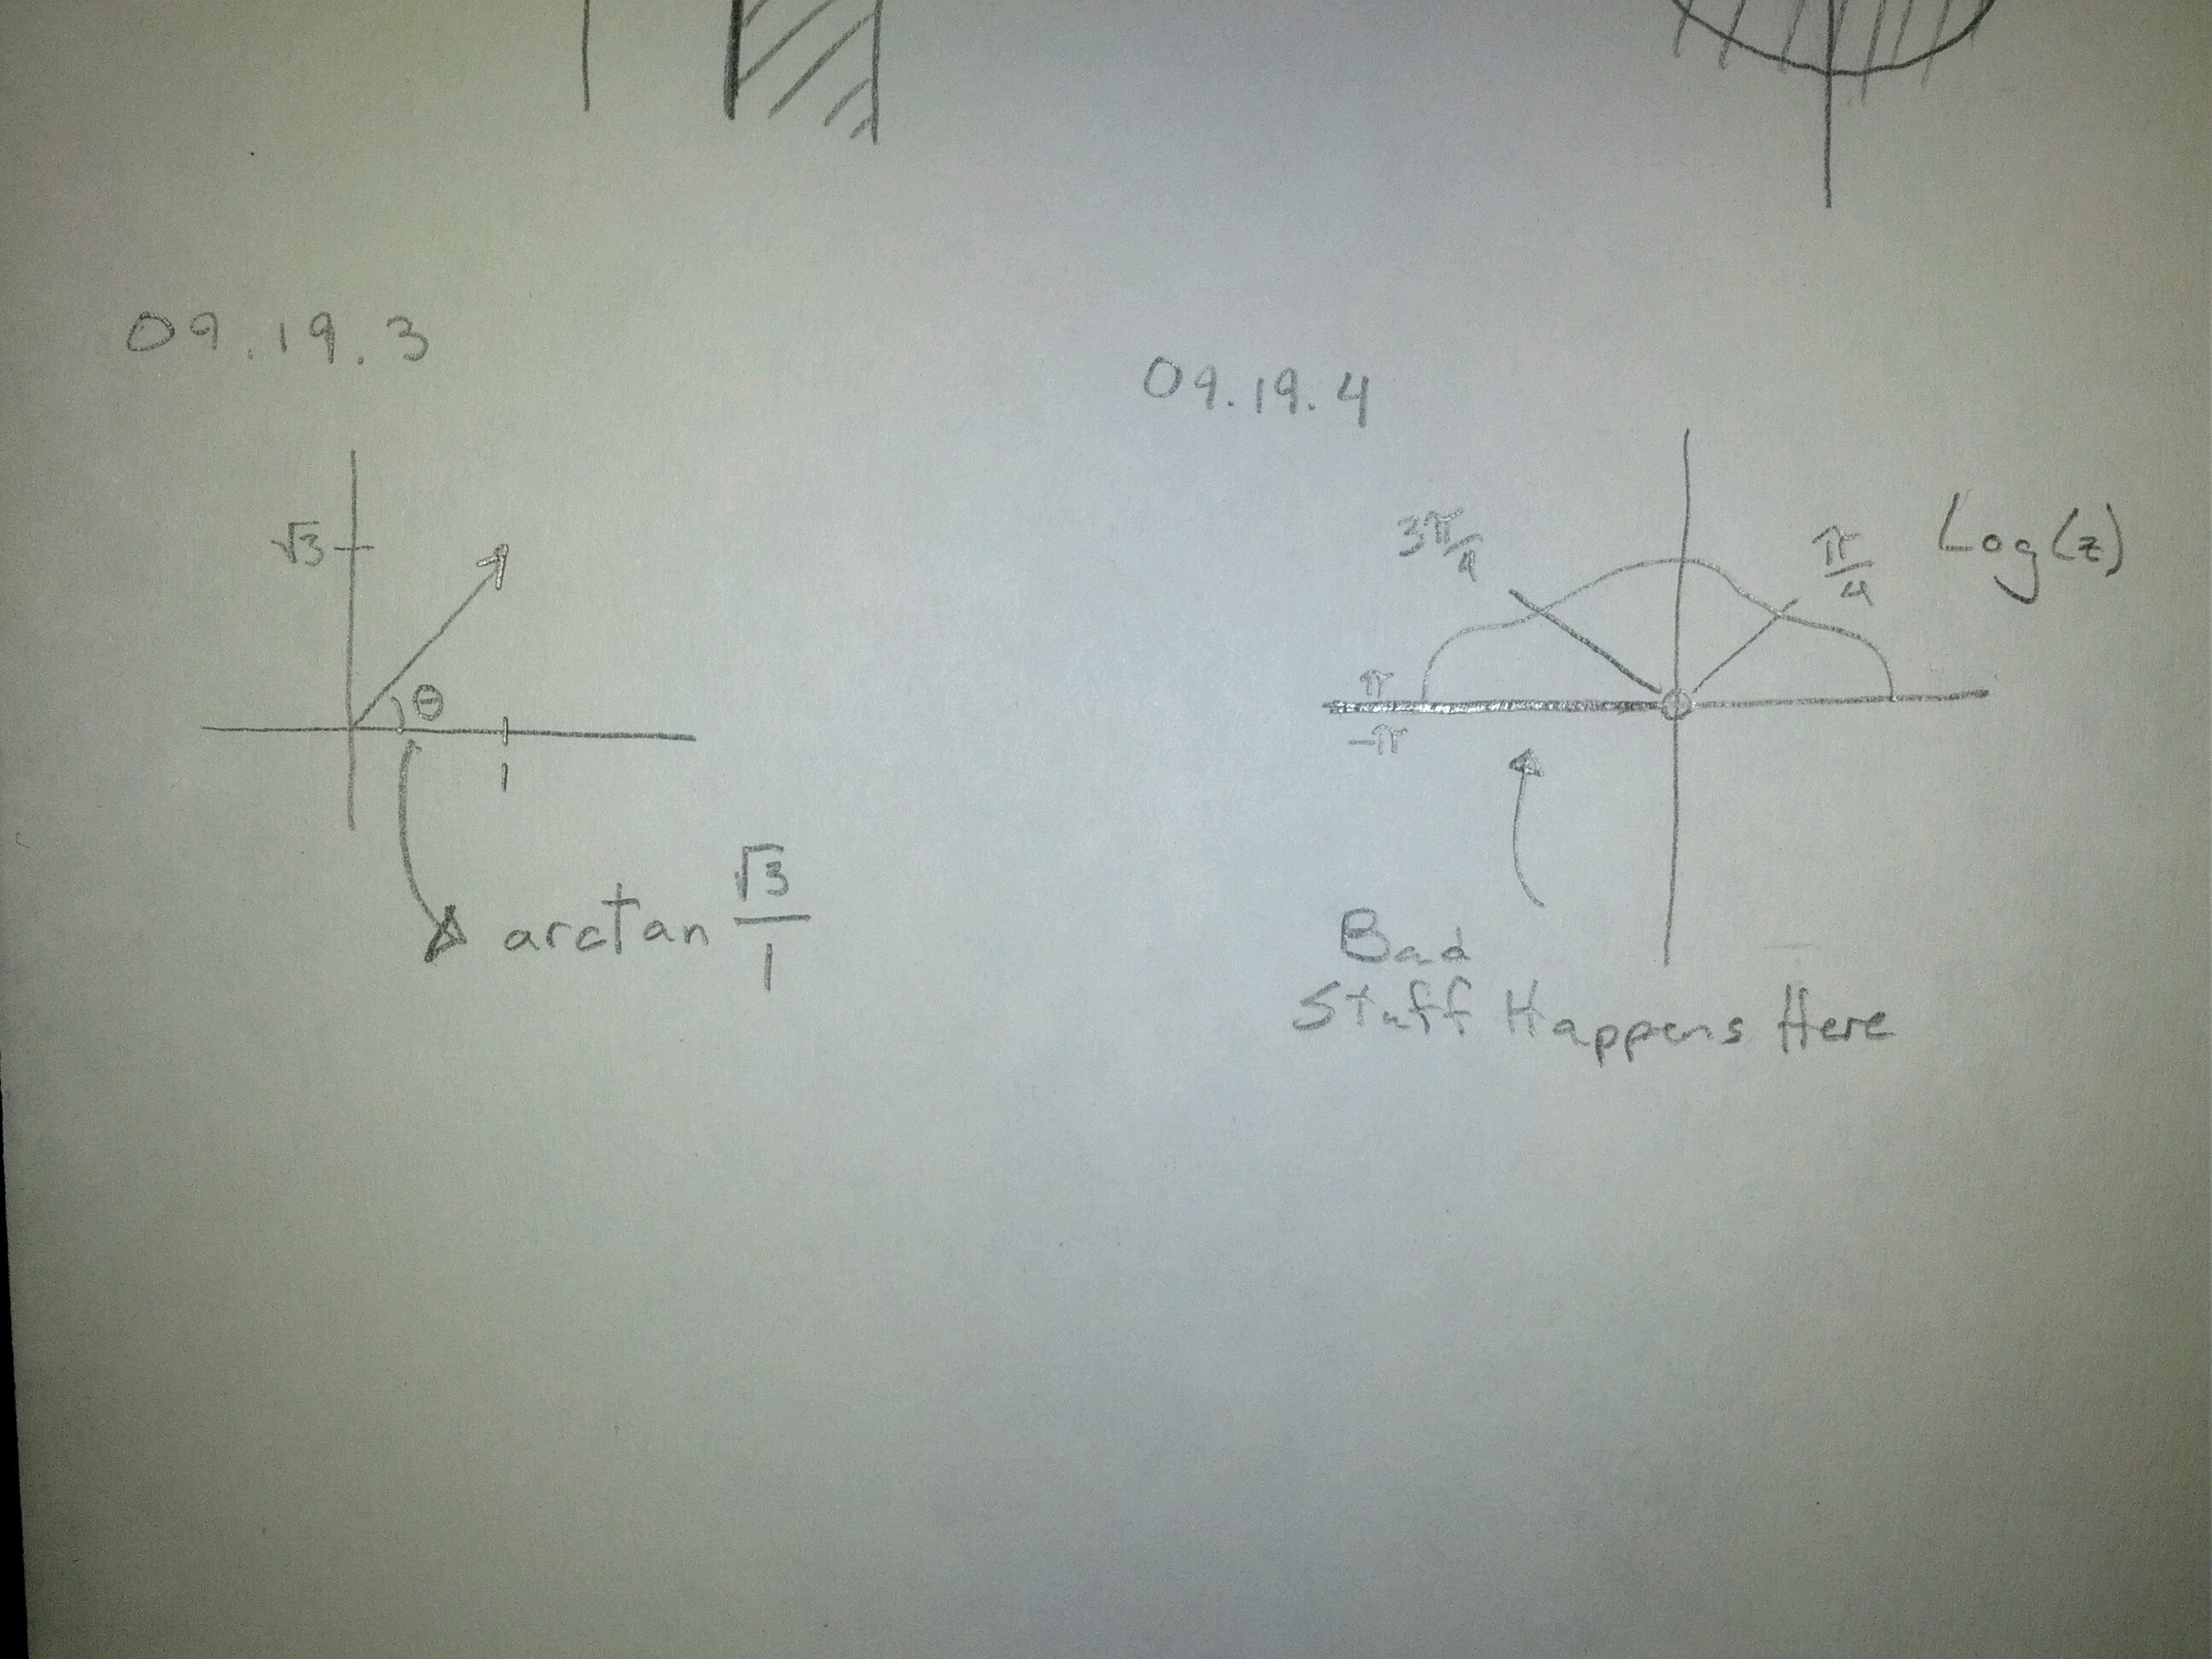 09.19.3
√3
θ
1
arctan √3/1
09.19.4
3π/4
π/4
Log(z)
π
-π
Bad
Stuff Happens Here